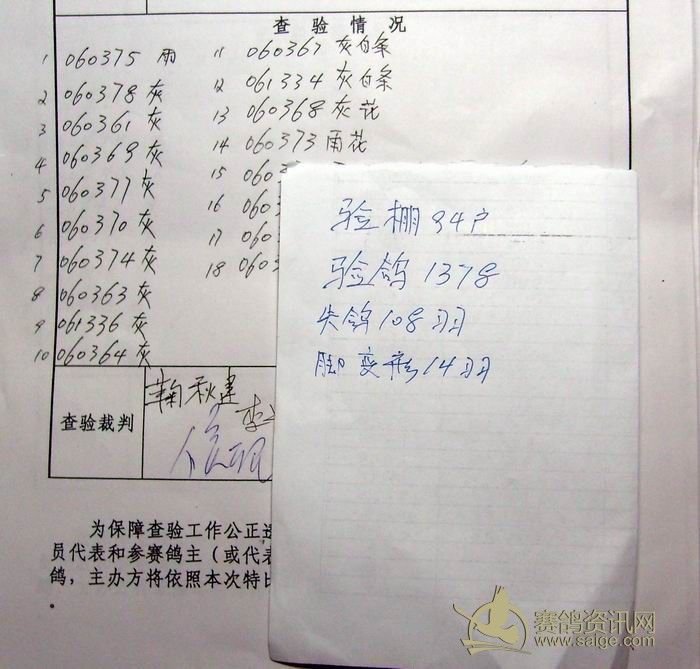 查验情况
1 060375 雨
2 060378 灰
3 060361 灰
4 060369 灰
5 060377 灰
6 060370 灰
7 060374 灰
8 060363 灰
9 061336 灰
10 060364 灰
11 060367 灰白条
12 061334 灰白条
13 060368 灰花
14 060373 雨花
15 060
16 060
17 060
18 060
验棚94户
验鸽1378
失鸽108羽
脚变形14羽
查验裁判
鞠秋建
为保障查验工作公正
员代表和参赛鸽主（或代表
鸽，主办方将依照本次特比
赛鸽资讯网
www.saige.com